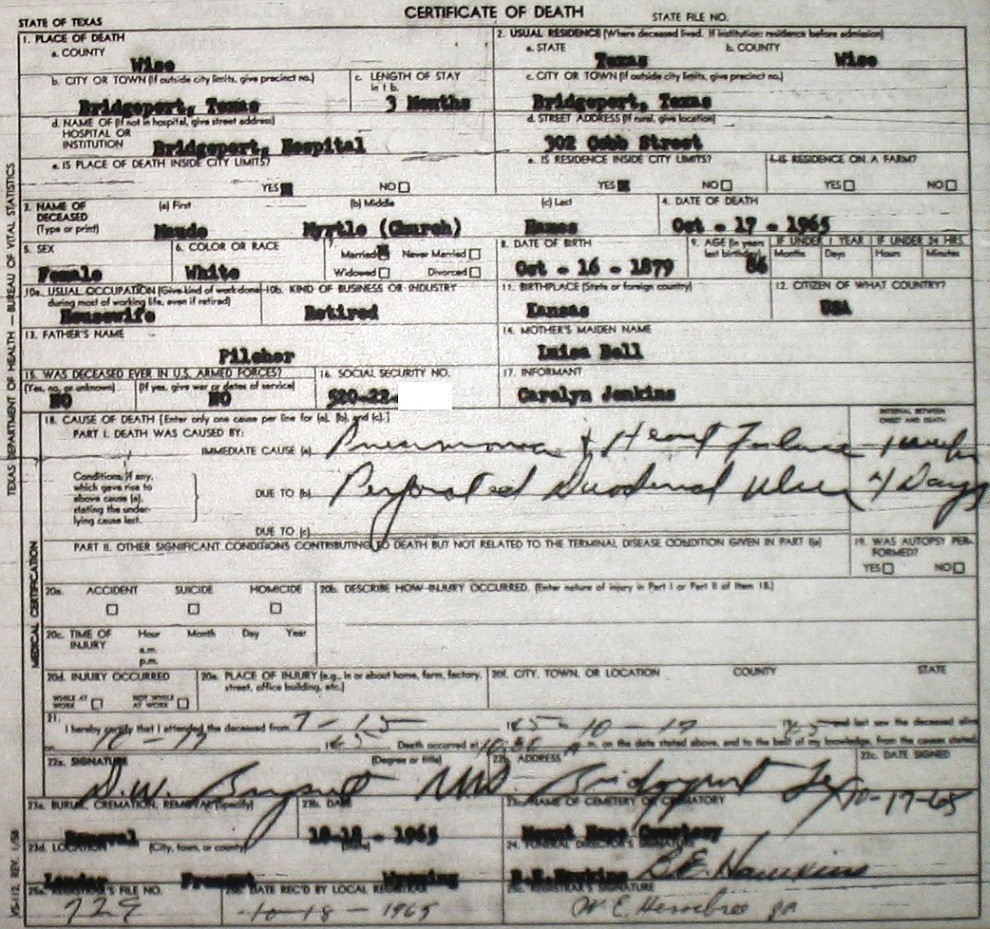 CERTIFICATE OF DEATH
STATE OF TEXAS
STATE FILE NO.
1. PLACE OF DEATH
a. COUNTY
Wise
2. USUAL RESIDENCE (Where deceased lived. If institution: residence before admission)
a. STATE
Texas
b. COUNTY
Wise
b. CITY OR TOWN (If outside city limits, give precinct no.)
Bridgeport, Texas
c. LENGTH OF STAY in 1 b.
3 Months
c. CITY OR TOWN (If outside city limits, give precinct no.)
Bridgeport, Texas
d. NAME OF (If not in hospital, give street address)
HOSPITAL OR
INSTITUTION
Bridgeport, Hospital
d. STREET ADDRESS (If rural, give location)
302 Cobb Street
e. IS PLACE OF DEATH INSIDE CITY LIMITS?
YES NO
e. IS RESIDENCE INSIDE CITY LIMITS?
YES NO
f. IS RESIDENCE ON A FARM?
YES NO
3. NAME OF DECEASED
(Type or print)
(a) First
Maude
(b) Middle
Myrtle (Church)
(c) Last
Eames
4. DATE OF DEATH
Oct - 17 - 1965
5. SEX
Female
6. COLOR OR RACE
White
7.
Married Never Married
Widowed Divorced
8. DATE OF BIRTH
Oct - 16 - 1879
9. AGE (In years last birthday)
86
IF UNDER 1 YEAR
Months Days
IF UNDER 24 HRS.
Hours Minutes
10a. USUAL OCCUPATION (Give kind of work done during most of working life, even if retired)
Housewife
10b. KIND OF BUSINESS OR INDUSTRY
Retired
11. BIRTHPLACE (State or foreign country)
Kansas
12. CITIZEN OF WHAT COUNTRY?
USA
13. FATHER'S NAME
Pilcher
14. MOTHER'S MAIDEN NAME
Luisa Bell
15. WAS DECEASED EVER IN U.S. ARMED FORCES?
(Yes, no, or unknown)
NO
(If yes, give war or dates of service)
NO
16. SOCIAL SECURITY NO.
520-22-
17. INFORMANT
Carolyn Jenkins
18. CAUSE OF DEATH [Enter only one cause per line for (a), (b), and (c).]
INTERVAL BETWEEN ONSET AND DEATH
PART I. DEATH WAS CAUSED BY:
IMMEDIATE CAUSE (a) Pneumonia & Heart Failure 1 week
Conditions, if any, which gave rise to above cause (a), stating the underlying cause last.
DUE TO (b) Perforated Duodenal Ulcer 4 Days
DUE TO (c)
PART II. OTHER SIGNIFICANT CONDITIONS CONTRIBUTING TO DEATH BUT NOT RELATED TO THE TERMINAL DISEASE CONDITION GIVEN IN PART I(a)
19. WAS AUTOPSY PERFORMED?
YES NO
MEDICAL CERTIFICATION
20a. ACCIDENT SUICIDE HOMICIDE
20b. DESCRIBE HOW INJURY OCCURRED. (Enter nature of injury in Part I or Part II of Item 18.)
20c. TIME OF INJURY
Hour Month Day Year
a.m.
p.m.
20d. INJURY OCCURRED
WHILE AT WORK NOT WHILE AT WORK
20e. PLACE OF INJURY (e.g., in or about home, farm, factory, street, office building, etc.)
20f. CITY, TOWN, OR LOCATION COUNTY STATE
21.
I hereby certify that I attended the deceased from 7-15 1965 - 10 - 17 1965 and last saw the deceased alive
on 10-17 1965 Death occurred at A m. on the date stated above, and to the best of my knowledge, from the causes stated.
22a. SIGNATURE
(Degree or title)
MD.
22b. ADDRESS
Bridgeport Tex
22c. DATE SIGNED
10-17-65
23a. BURIAL, CREMATION, REMOVAL (Specify)
Removal
23b. DATE
10-18 - 1965
23c. NAME OF CEMETERY OR CREMATORY
Mount Hope Cemetery
23d. LOCATION (City, town, or county) (State)
Lander Fremont Wyoming
24. FUNERAL DIRECTOR'S SIGNATURE
B.E. Hawkins B.E. Hawkins
25a. REGISTRAR'S FILE NO.
729
25b. DATE REC'D BY LOCAL REGISTRAR
10-18-1965
25c. REGISTRAR'S SIGNATURE
W. E. Hembree
TEXAS DEPARTMENT OF HEALTH — BUREAU OF VITAL STATISTICS
VS-112, REV. 1/58